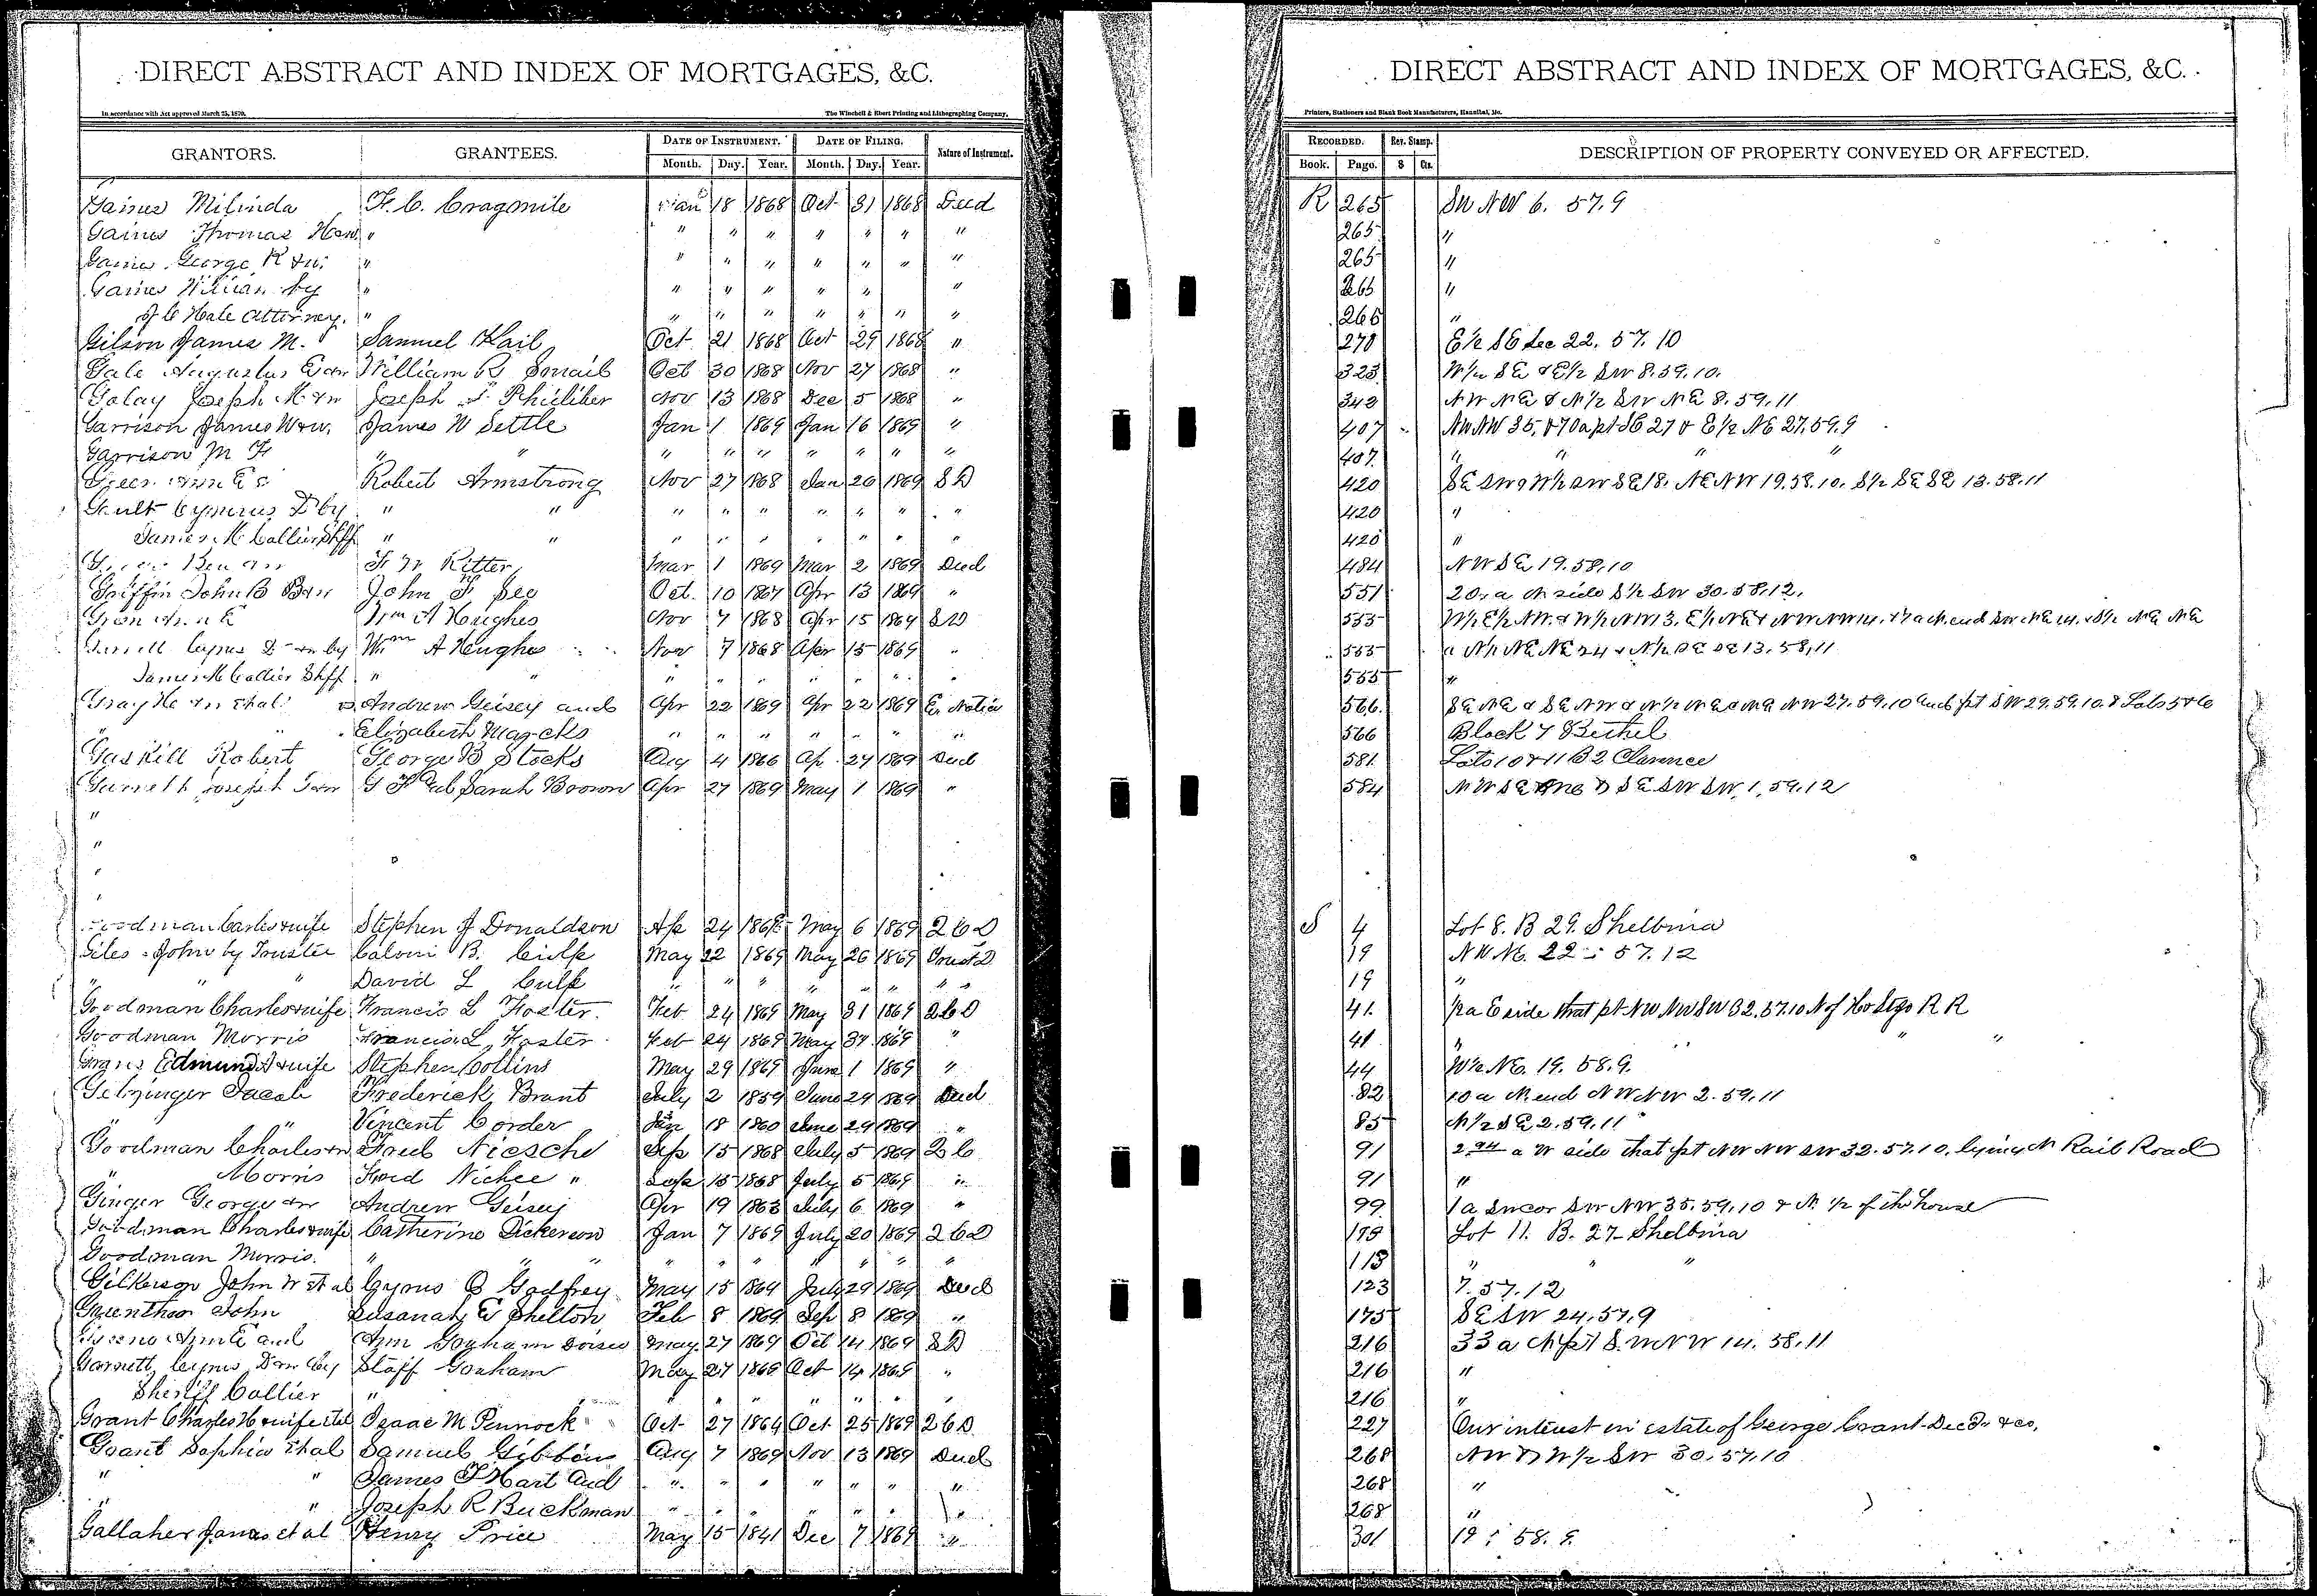 DIRECT ABSTRACT AND INDEX OF MORTGAGES, &C.
In accordance with Act approved March 25, 1870.
The Winchell & Ebert Printing and Lithographing Company,
GRANTORS. GRANTEES. DATE OF INSTRUMENT. DATE OF FILING. Nature of Instrument.
Month. Day. Year. Month. Day. Year.
Gaines Milinda F. C. Cragmile Jan 18 1868 Oct 31 1868 Deed
Gaines Thomas " " " " " " " "
Gaines George R & w. " " " " " " " "
Gaines William by " " " " " " "
J C Hale Attorney. " " " " " " " "
Gilson James M. Samuel Hail Oct 21 1868 Oct 29 1868 "
Gale Augustus William R Smail Oct 30 1868 Nov 27 1868 "
Galay Joseph M & w Joseph Philiber Nov 13 1868 Dec 5 1868 "
Garrison James W & w. James W Settle Jan 1 1869 Jan 16 1869 "
Garrison M F " " " " " " " " "
Robert Armstrong Nov 27 1868 Jan 20 1869 S D
by " " " " " " " " "
James M Collier Shff " " " " " " " " "
Ritter Mar 1 1869 Mar 2 1869 Deed
Griffin John B John F See Oct. 10 1867 Apr 13 1869 "
Wm A Hughes Nov 7 1868 Apr 15 1869 S D
by Wm A Hughes Nov 7 1868 Apr 15 1869 "
James M Collier Shff " " " " " " " " "
Gray Andrew Geisey and Apr 22 1869 Apr 22 1869 Notice
" " Elizabeth " " " " " " "
Gaskill Robert George B Stocks Aug 4 1866 Ap 24 1869 Deed
Joseph Sarah Boown Apr 27 1869 May 1 1869 "
"
"
"
"
Goodman Carles & wife Stephen J Donaldson Ap 24 1868 May 6 1869 2 C D
Giles John by Trustee Calvin B. Culp May 22 1869 May 26 1869 Trust D
" " " David L Culp " " " " " " "
Goodman Charles & wife Francis L Foster. Feb 24 1869 May 31 1869 2 C D
Goodman Morris Francis L Foster Feb 24 1869 May 31 1869 "
Edmund & wife Stephen Collins May 29 1869 June 1 1869 "
Jacob Frederick Brant July 2 1859 June 29 1869 Deed
" " Vincent Corder Jan 18 1860 June 29 1869 "
Goodman Charles & w Fred Niesche Sep 15 1868 July 5 1869 2 C
" Morris Ford Nichee " Sep 15 1868 July 5 1869 "
Ginger George & w Andrew Geisey Apr 19 1863 July 6 1869 "
Goodman Charles & wife Catherine Dickerson Jan 7 1869 July 20 1869 2 C D
Goodman Morris. " " " " " " " " "
Gilkerson John W et al Cyrus C Godfrey May 15 1869 July 29 1869 Deed
John Susanah E Shelton Feb 8 1869 Sep 8 1869 "
and Ann Gorham May 27 1869 Oct 14 1869 S D
Garnett Cyrus D & w by Staff Gorham May 27 1869 Oct 14 1869 "
Sheriff Collier " " " " " " " "
Grant Charles H & wife et al Isaac M Pennock Oct 27 1864 Oct 25 1869 2 C D
Grant Sophia et al Samuel Gibbons Aug 7 1869 Nov 13 1869 Deed
" " James F Hart and " " " " " " "
" " Joseph R Buckman " " " " " " "
Gallaher James et al Henry Price May 15 1841 Dec 7 1869 "
DIRECT ABSTRACT AND INDEX OF MORTGAGES, &C.
Printers, Stationers and Blank Book Manufacturers, Hannibal, Mo.
RECORDED. Rev. Stamp. DESCRIPTION OF PROPERTY CONVEYED OR AFFECTED.
Book. Page. $ Cts.
R 265 SW NW 6. 57.9
265 "
265 "
265 "
265 "
270 E½ SE Sec 22. 57. 10
323 W½ SE & E½ SW 8. 59. 10.
342 NW NE & N½ SW NE 8. 59. 11
407 NW NW 35, & 70a pt SE 27 & E½ NE 27. 59. 9
407 " " " "
420 SE SW & W½ SW SE 18. NE NW 19. 58. 10. S½ SE SE 13. 58. 11
420 "
420 "
484 NW SE 19. 58. 10
551 20. a N side S½ SW 30. 58. 12.
553
553 N½ NE NE 24 & N½ SE SE 13. 58, 11
553 "
566 SE NE & SE NW & N½ NE & NE NW 27. 59. 10 and pt SW 29. 59. 10. & Lots 5 & 6
566 Block 7 Bethel
581 Lots 10 & 11 B 2 Clarence
584 NW SE SE SW SW, 1, 59. 12
S 4 Lot 8. B 29. Shelbina
19 NW NE. 22 : 57. 12
19 "
41. E side that pt NW NW SW 32. 57. 10 N of R R
41 " " " "
44 W½ NE. 19. 58. 9.
82 10 a N. end NW NW 2. 59. 11
85 N½ SE 2. 59. 11
91 2 94 a W side that pt NW NW SW 32. 57. 10. lying N Rail Road
91 "
99 1 a SW cor SW NW 35. 59. 10 & N. ½ of the house
113 Lot 11. B. 27 Shelbina
113 " " "
123 7. 57. 12
175 SE SW 24. 57. 9
216 33 a N pt S. W NW 14. 58. 11
216 "
216 "
227 Our interest in estate of George Grant Decd. &co,
268 NW & W½ SW 30. 57. 10
268 "
268 "
301 19 : 58. 9.